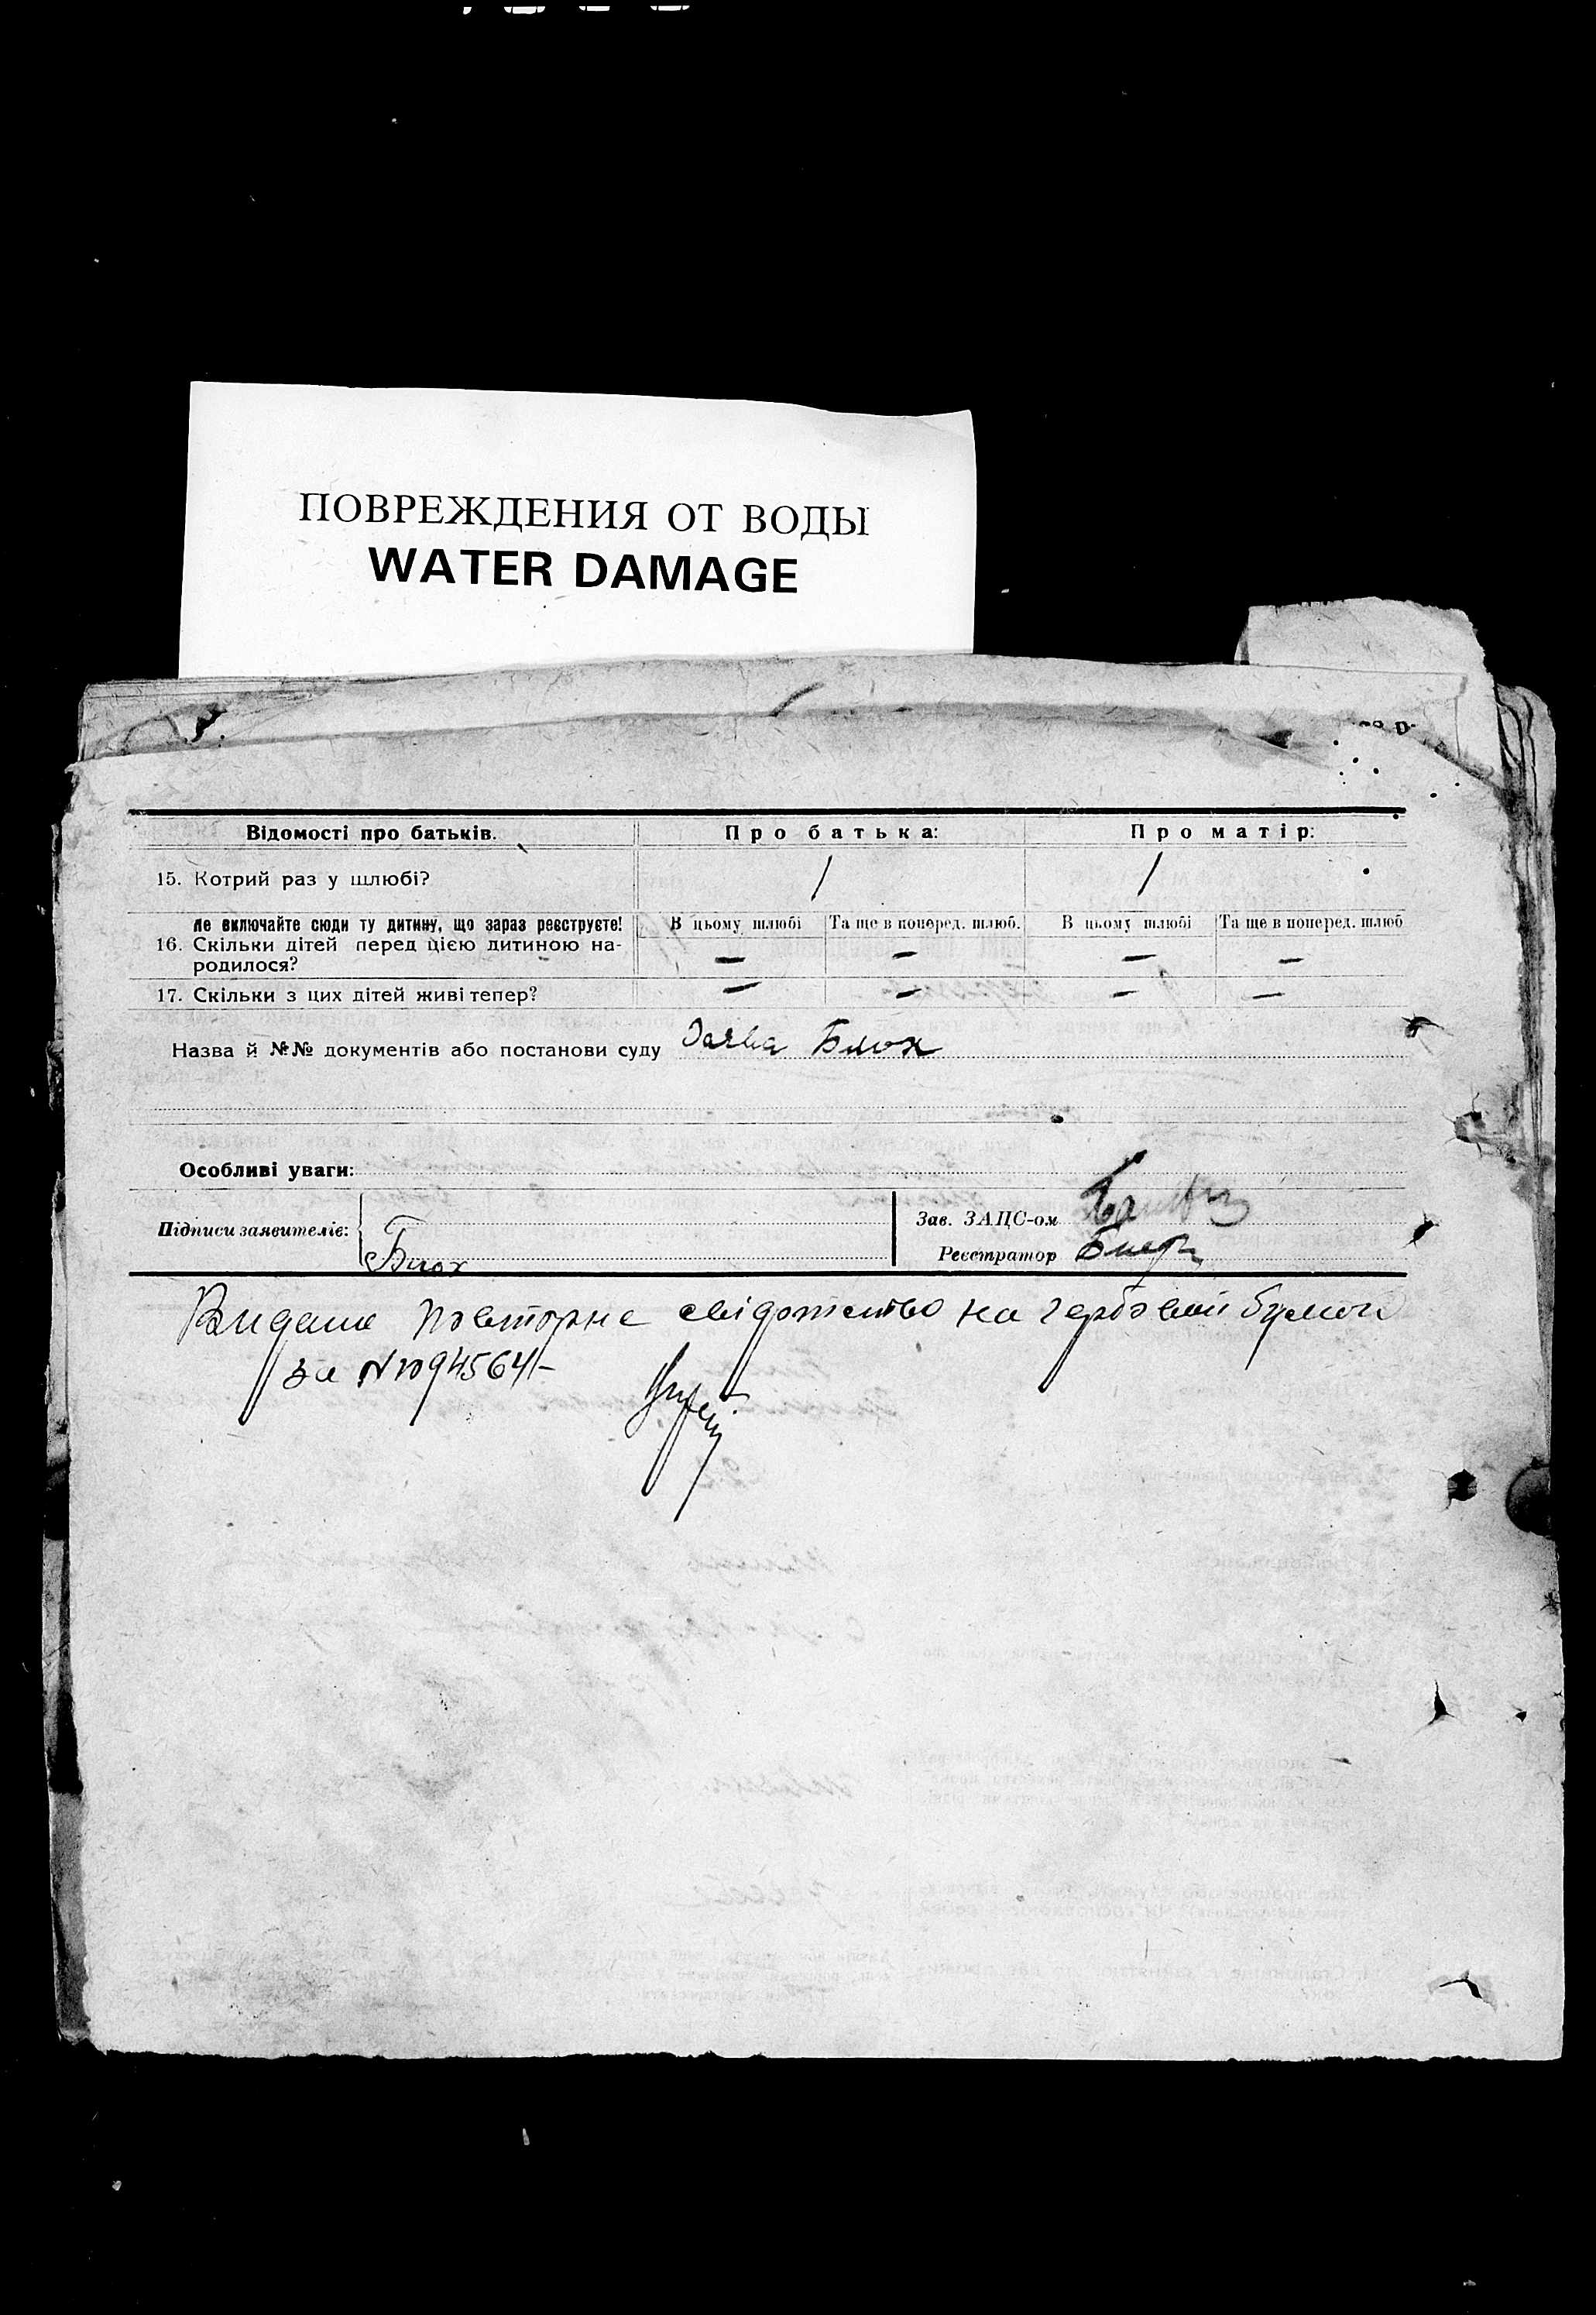 ПОВРЕЖДЕНИЯ ОТ ВОДЫ
WATER DAMAGE
Відомості про батьків. Про батька: Про матір:
15. Котрий раз у шлюбі? / /
не включайте сюди ту дитину, що зараз реєструєте! В цьому шлюбі Та ще в поперед. шлюб. В цьому шлюбі Та ще в поперед. шлюб
16. Скільки дітей перед цією дитиною на-
родилося? — — — —
17. Скільки з цих дітей живі тепер? — — — —
Назва й №№ документів або постанови суду Заява Блох
Особливі уваги:
Підписи заявителів: Блох
Зав. ЗАЦС-ом
Реєстратор
Видано повторне свідотство на гербовій бумагі
за N